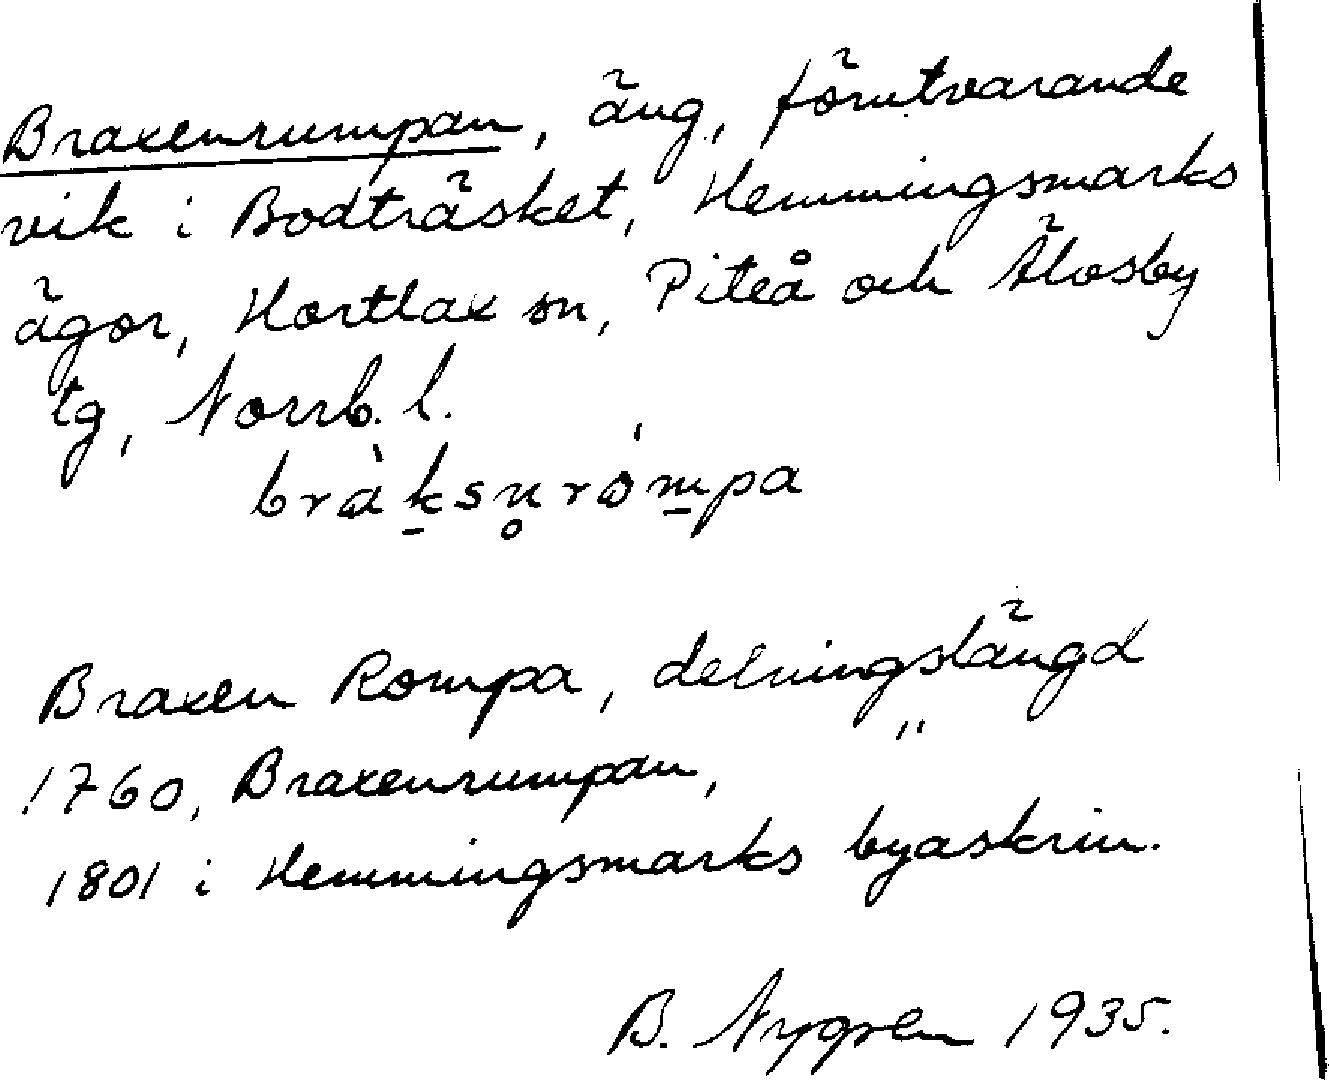 Braxenrumpan, äng, förutvarande
vik i Bodträsket, Hemmingsmarks
ägor, Hortlax sn, Piteå och Älvsby
tg, Norrb. l.
bràk̠sn̥rómpa
Braxen Rompa, delningslängd
1760, Braxenrumpan, "
1801 i Hemmingsmarks byaskrin.
B. Nygren 1935.